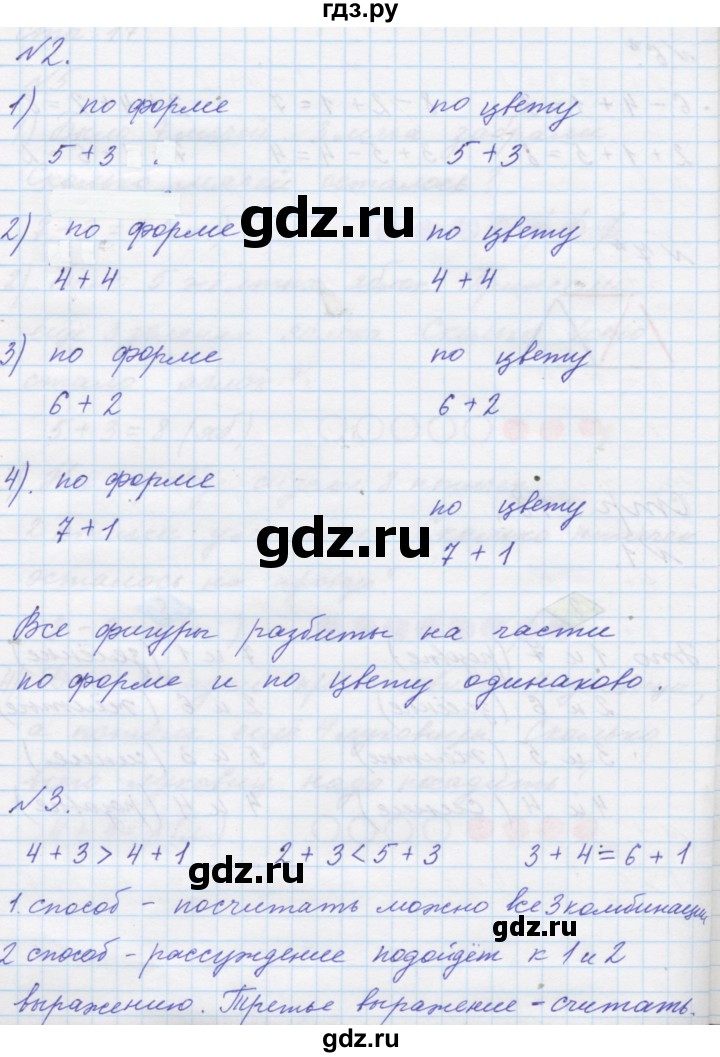 гдз.ру
№2.
1) по форме по цвету
5+3 . 5+3
gdz.ru
2) по форме по цвету
4+4 4+4
gdz.ru
3) по форме по цвету
6+2 6+2
4). по форме по цвету
7+1 7+1
gdz.ru
Все фигуры разбиты на части
по форме и по цвету одинаково.
gdz.ru
№3.
4+3>4+1 2+3<5+3 3+4=6+1
gdz.ru
1. способ - посчитать можно все 3 комбинации
gdz.ru
2 способ - рассуждение подойдёт к 1 и 2
выражению. Третье выражение - считать.
gdz.ru